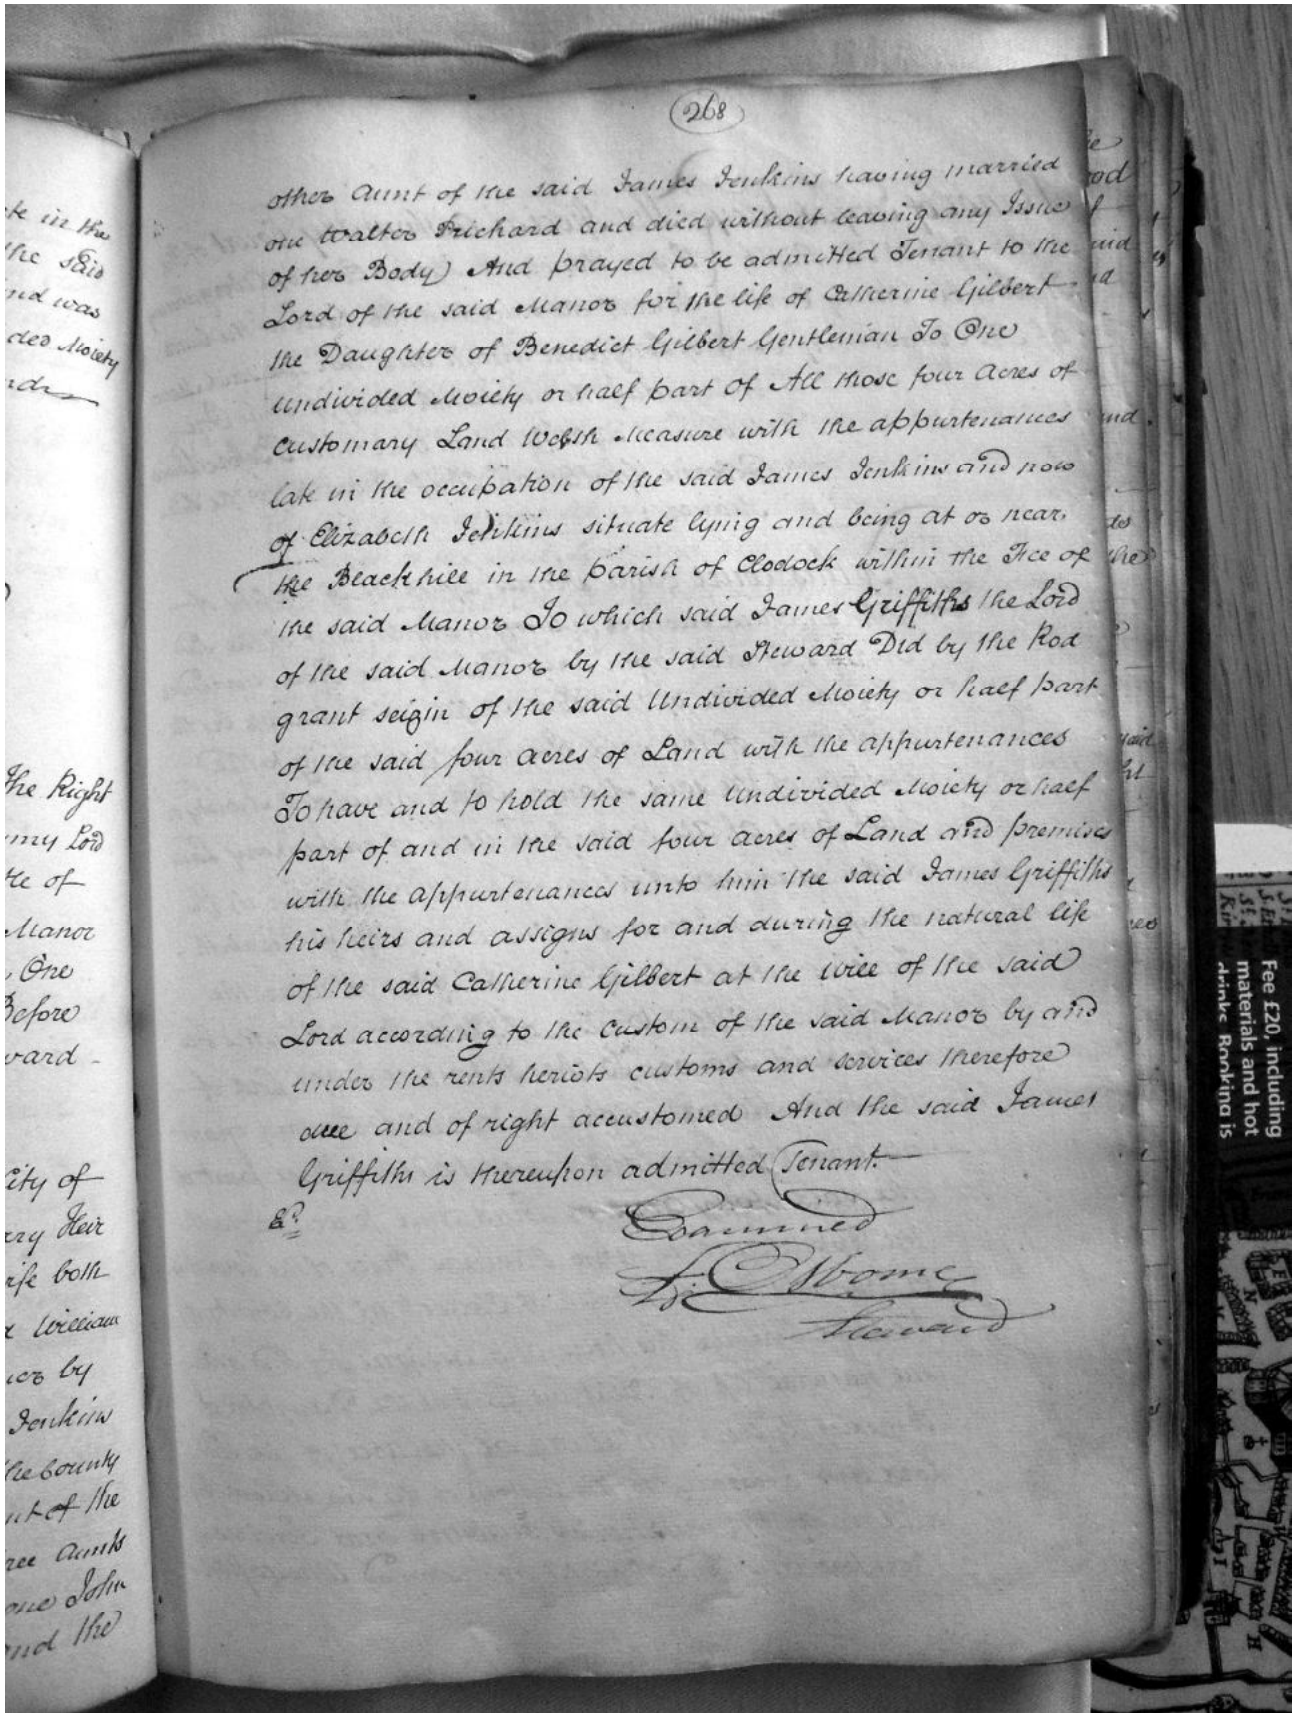 te in the
the said
and was
ded Moiety
The Right
my Lord
of
Manor
One
Before
ward -
City of
Heir
both
William
by
Jenkins
the County
of the
Aunts
one John
and the
268
other Aunt of the said James Jenkins having married
one Walter Prichard and died without leaving any Issue
of her Body) And prayed to be admitted Tenant to the
Lord of the said Manor for the life of Catherine Gilbert
the Daughter of Benedict Gilbert Gentleman To One
undivided Moiety or half part Of All those four Acres of
Customary Land Welsh Measure with the appurtenances
late in the occupation of the said James Jenkins and now
of Elizabeth Jenkins situate lying and being at or near
the Blackhill in the Parish of Clodock within the Fee of
the said Manor To which said James Griffiths the Lord
of the said Manor by the said Steward Did by the Rod
grant seizin of the said Undivided Moiety or half part
of the said four acres of Land with the appurtenances
To have and to hold the same undivided Moiety or half
part of and in the said four acres of Land and premises
with the appurtenances unto him the said James Griffiths
his heirs and assigns for and during the natural life
of the said Catherine Gilbert at the Will of the said
Lord according to the Custom of the said Manor by and
under the rents heriots customs and services therefore
due and of right accustomed And the said James
Griffiths is thereupon admitted Tenant.
Examined
Osborne
Steward
Fee £20, including
materials and hot
drinks. Booking is